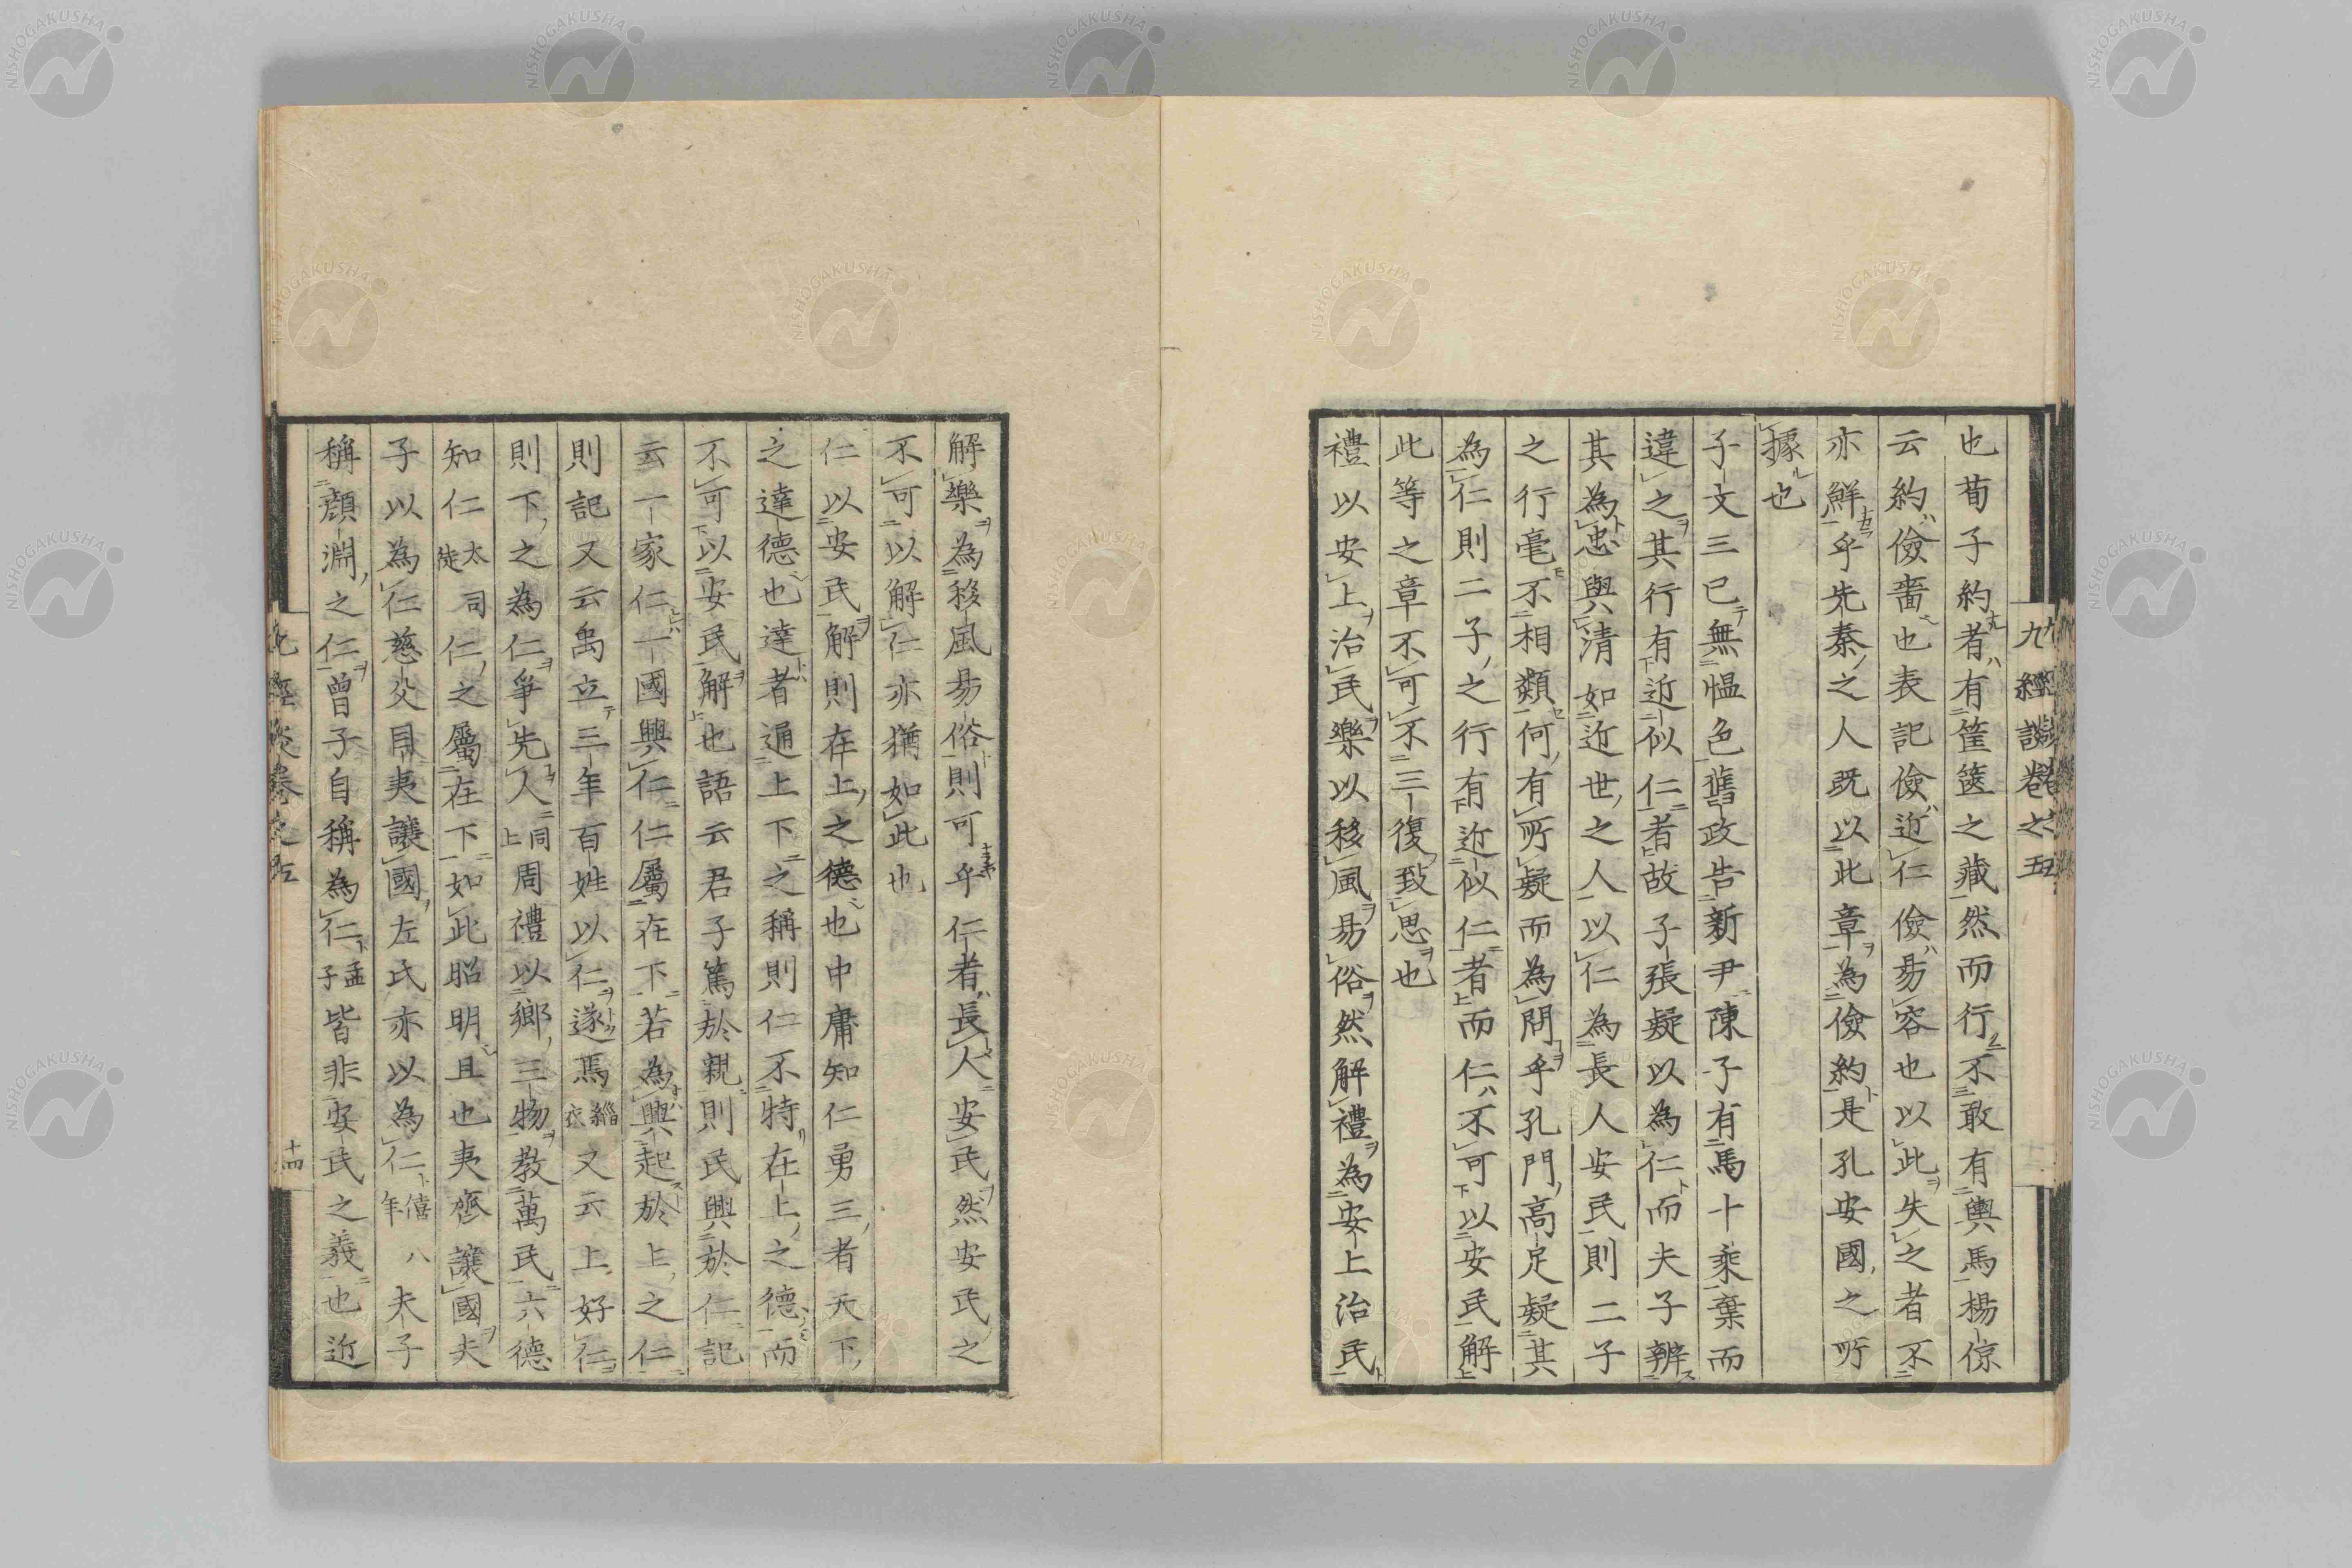 九經談卷之五
也荀子約者有筐篋之藏然而行不敢有輿馬楊倞
云約儉嗇也表記儉近仁儉易容也以此失之者不
亦鮮乎先秦之人既以此章為儉約是孔安國之所
據也
子文三已無慍色舊政告新尹陳子有馬十乘棄而
違之其行有近似仁者故子張疑以為仁而夫子辨
其為忠與清如近世之人以仁為長人安民則二子
之行毫不相類何有所疑而為問乎孔門高足疑其
為仁則二子之行有近似仁者而仁不可以安民解
此等之章不可不三復致思也
禮以安上治民樂以移風易俗然解禮為安上治民
解樂為移風易俗則可乎仁者長人安民然安民之
不可以解仁亦猶如此也
仁以安民解則在上之德也中庸知仁勇三者天下
之達德也達者通上下之稱則仁不特在上之德而
不可以安民解也語云君子篤於親則民興於仁記
云一家仁一國興仁仁屬在下若為興起於上之仁
則記又云禹立三年百姓以仁遂焉緇衣又云上好仁
則下之為仁爭先人同上周禮以鄉三物教萬民六德
知仁大司徒仁之屬在下如此昭明且也夷齊讓國夫
子以為仁慈父目夷讓國左氏亦以為仁僖八年夫子
稱顏淵之仁曾子自稱為仁孟子皆非安民之義也近
十四